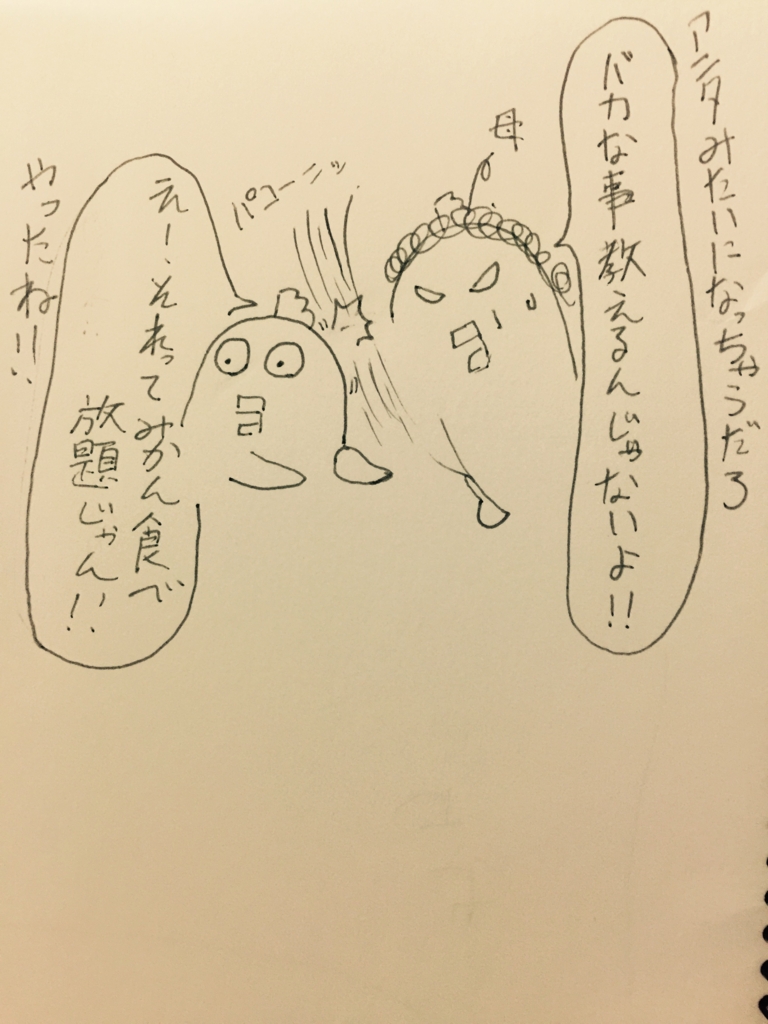 アンタみたいになっちゃうだろ
バカな事教えるんじゃないよ!!
母
パコーンッ
えー、それってみかん食べ
放題じゃん!!
やったね!!